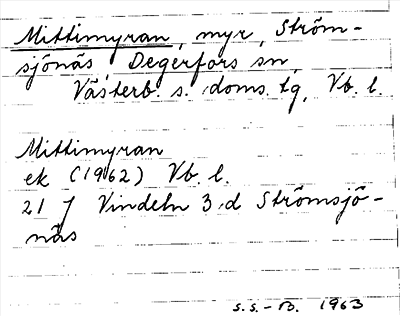 Mittimyran, myr, Ström-
sjönäs Degerfors sn,
Västerb. s. doms. tg, Vb. l.
Mittimyran
ek (1962) Vb. l.
21 J Vindeln 3 d Strömsjö-
näs
S.S.-B. 1963